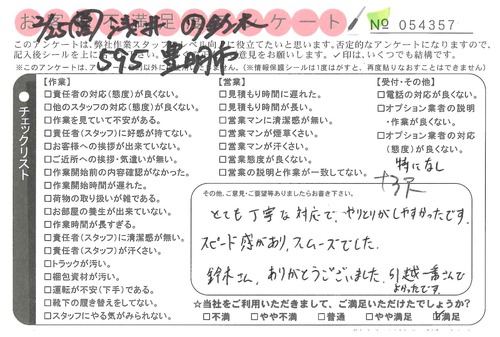 お客様不満足アンケート
№ 054357
2/25(金) 浅井 の鈴木
595 豊明市
このアンケートは、弊社作業スタッフのレベル向上に役立てたいと思います。否定的なアンケートになりますので、
記入後シールを上に
ご意見をお願いします。✓印は、いくつでも結構です。
※このアンケートは、
以外には
(※情報保護シールは1度はがすと、再度貼りなおすことはできません)
チェックリスト
【作業】
□責任者の対応(態度)が良くない。
□他のスタッフの対応(態度)が良くない。
□作業を見ていて不安がある。
□責任者(スタッフ)に好感が持てない。
□お客様への挨拶が出来ていない。
□ご近所への挨拶・気遣いが無い。
□作業開始前の内容確認がなかった。
□作業開始時間が遅れた。
□荷物の取り扱いが雑である。
□お部屋の養生が出来ていない。
□作業時間が長すぎる。
□責任者(スタッフ)に清潔感が無い。
□責任者(スタッフ)が汗くさい。
□トラックが汚い。
□梱包資材が汚い。
□運転が不安(下手)である。
□靴下の履き替えをしてない。
□スタッフにやる気がみられない。
【営業】
□見積もり時間に遅れた。
□見積もり時間が長い。
□営業マンに清潔感が無い。
□営業マンが煙草くさい。
□営業マンが汗くさい。
□営業態度が良くない。
□営業の説明と作業が一致してない。
【受付・その他】
□電話の対応が良くない。
□オプション業者の説明
・作業が良くない。
□オプション業者の対応
(態度)が良くない。
特になし
その他、ご意見・ご要望等ありましたらお書き下さい。
とても丁寧な対応で、やりとりがしやすかったです。
スピード感があり、スムーズでした。
鈴木さん、ありがとうございました。引越一番さんで
よかったです。
☆当社をご利用いただきまして、ご満足いただけてしょうか?
□不満 □やや不満 □普通 □やや満足 ☑満足